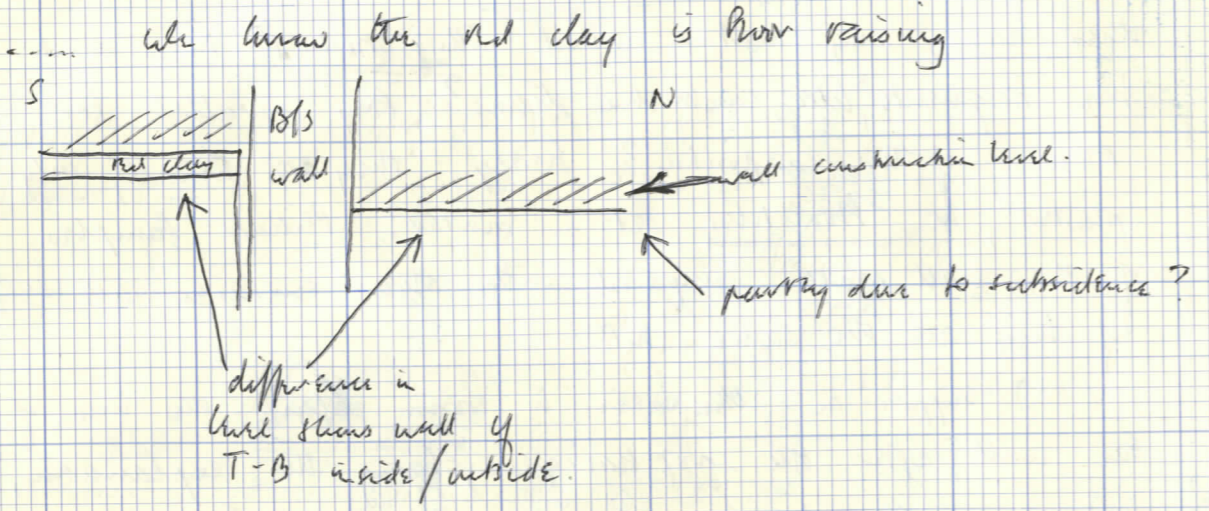 ..... we know the red clay is floor raising
S
N
B/S
wall
red clay
wall construction level.
partly due to subsidence?
difference in
level shows wall of
T-B inside/outside.